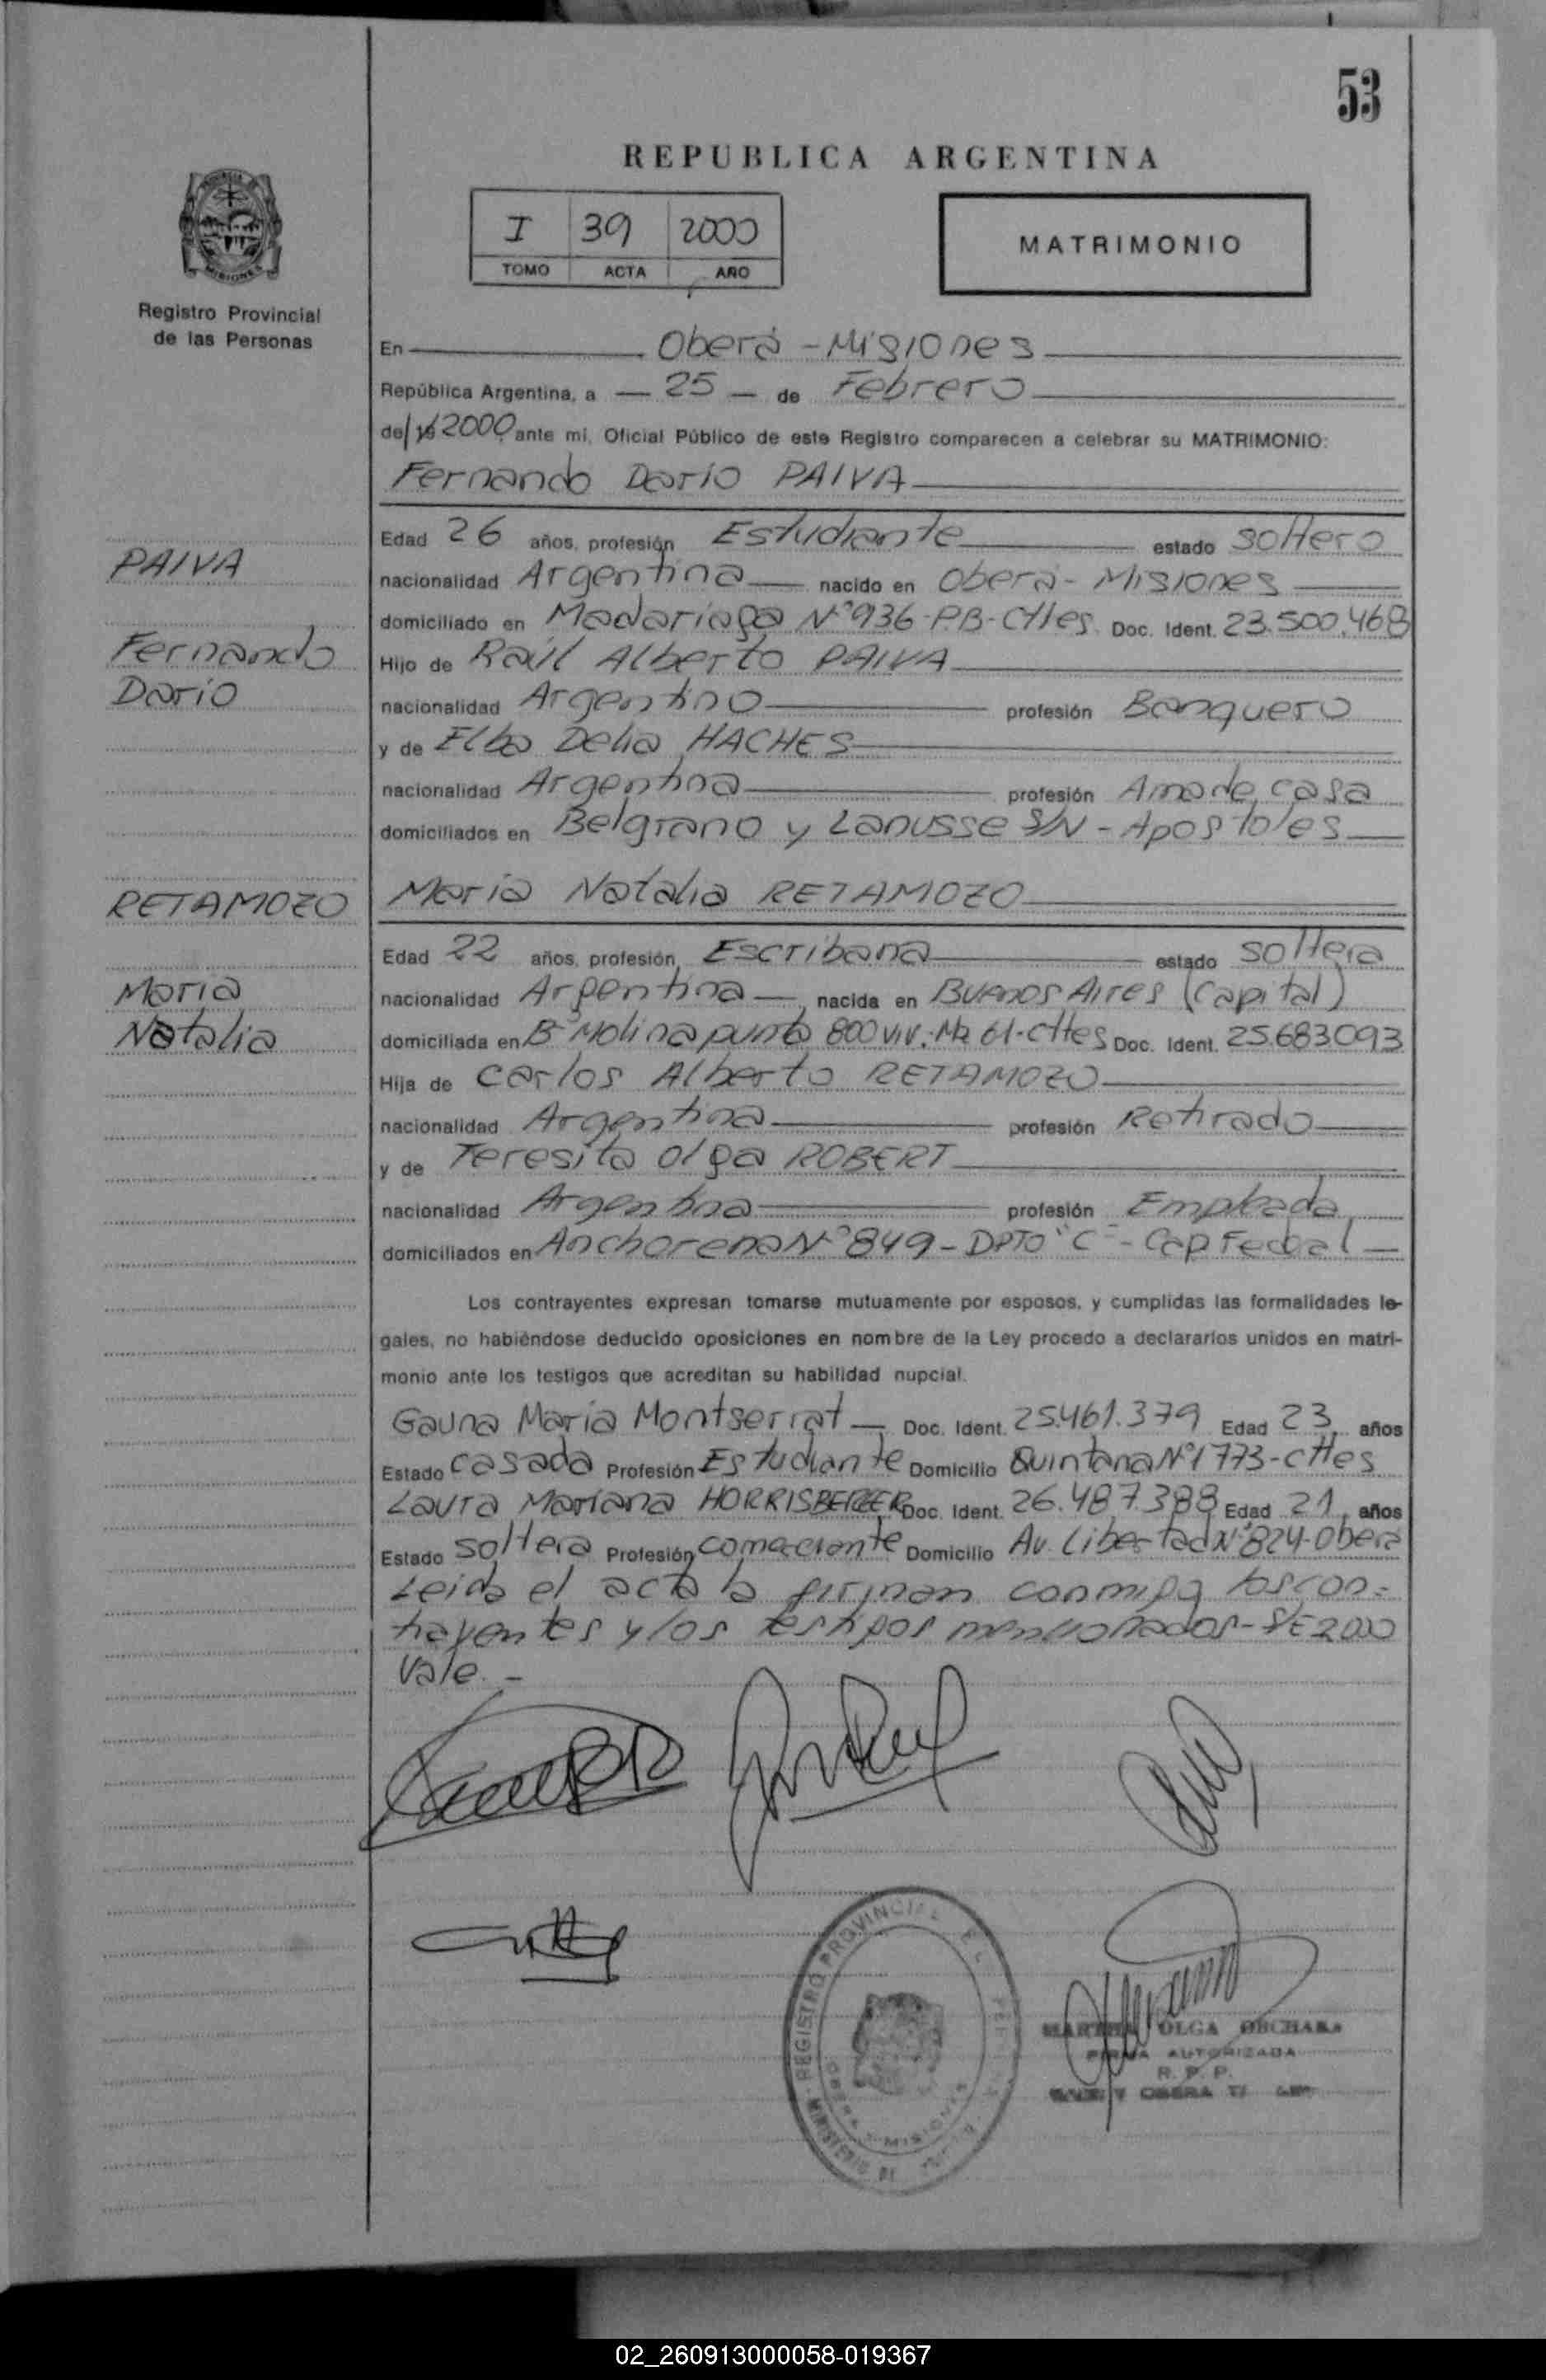 53
REPUBLICA ARGENTINA
I 39 2000
TOMO ACTA AÑO
MATRIMONIO
Registro Provincial
de las Personas
En Oberá - Misiones
República Argentina, a — 25 — de Febrero
del 19 2000 ante mi, Oficial Público de este Registro comparecen a celebrar su MATRIMONIO:
Fernando Dario PAIVA
Edad 26 años, profesión Estudiante estado soltero
PAIVA
nacionalidad Argentina nacido en Oberá - Misiones
domiciliado en Madariaga Nº 936 - P.B - Cttes. Doc. Ident. 23.500.468
Fernando
Hijo de Raúl Alberto PAIVA
Dario
nacionalidad Argentino profesión Banquero
y de Elba Delia HACHES
nacionalidad Argentina profesión Ama de casa
domiciliados en Belgrano y Lanusse S/N - Apostoles
RETAMOZO
Maria Natalia RETAMOZO
Edad 22 años, profesión Escribana estado soltera
Maria
nacionalidad Argentina nacida en Buenos Aires (Capital)
Natalia
domiciliada en Bº Molina punta 800 viv. Mz 61 - cttes Doc. Ident. 25.683.093
Hija de Carlos Alberto RETAMOZO
nacionalidad Argentina profesión Retirado
y de Teresita Olga ROBERT
nacionalidad Argentina profesión Empleada
domiciliados en Anchorena Nº 849 - DPTO "C" - Cap Federal
Los contrayentes expresan tomarse mutuamente por esposos, y cumplidas las formalidades le-
gales, no habiéndose deducido oposiciones en nombre de la Ley procedo a declararlos unidos en matri-
monio ante los testigos que acreditan su habilidad nupcial.
Gauna Maria Montserrat Doc. Ident. 25.461.379 Edad 23 años
Estado Casada Profesión Estudiante Domicilio Quintana Nº 1773 - cttes
Laura Mariana HORRISBERGER Doc. Ident. 26.487.388 Edad 21 años
Estado soltera Profesión comerciante Domicilio Av. Libertad Nº 824 - Oberá
Leida el acta la firman conmigo los con=
trayentes y los testigos mencionados - S/E 2000
Vale. -
REGISTRO PROVINCIAL DE LAS
OBERA - MISIONES
MINISTERIO DE
MARTHA OLGA
FIRMA AUTORIZADA
R. P. P.
OBERA
02_260913000058-019367